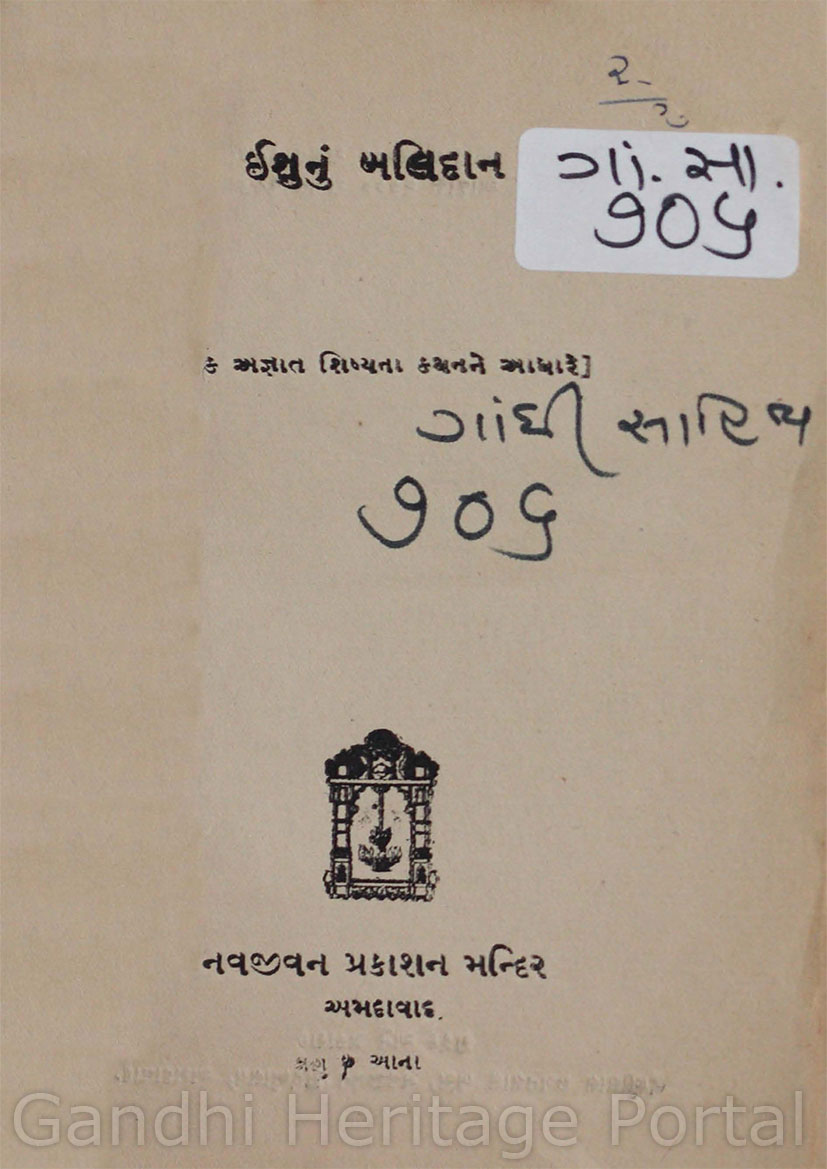 ૨-
ઈશુનું બલિદાન
ગાં. સા.
૭૦૫
ક અજ્ઞાત શિષ્યના કથનને આધારે]
ગાંધી સાહિત્ય
૭૦૬
નવજીવન પ્રકાશન મન્દિર
અમદાવાદ
આના
Gandhi Heritage Portal